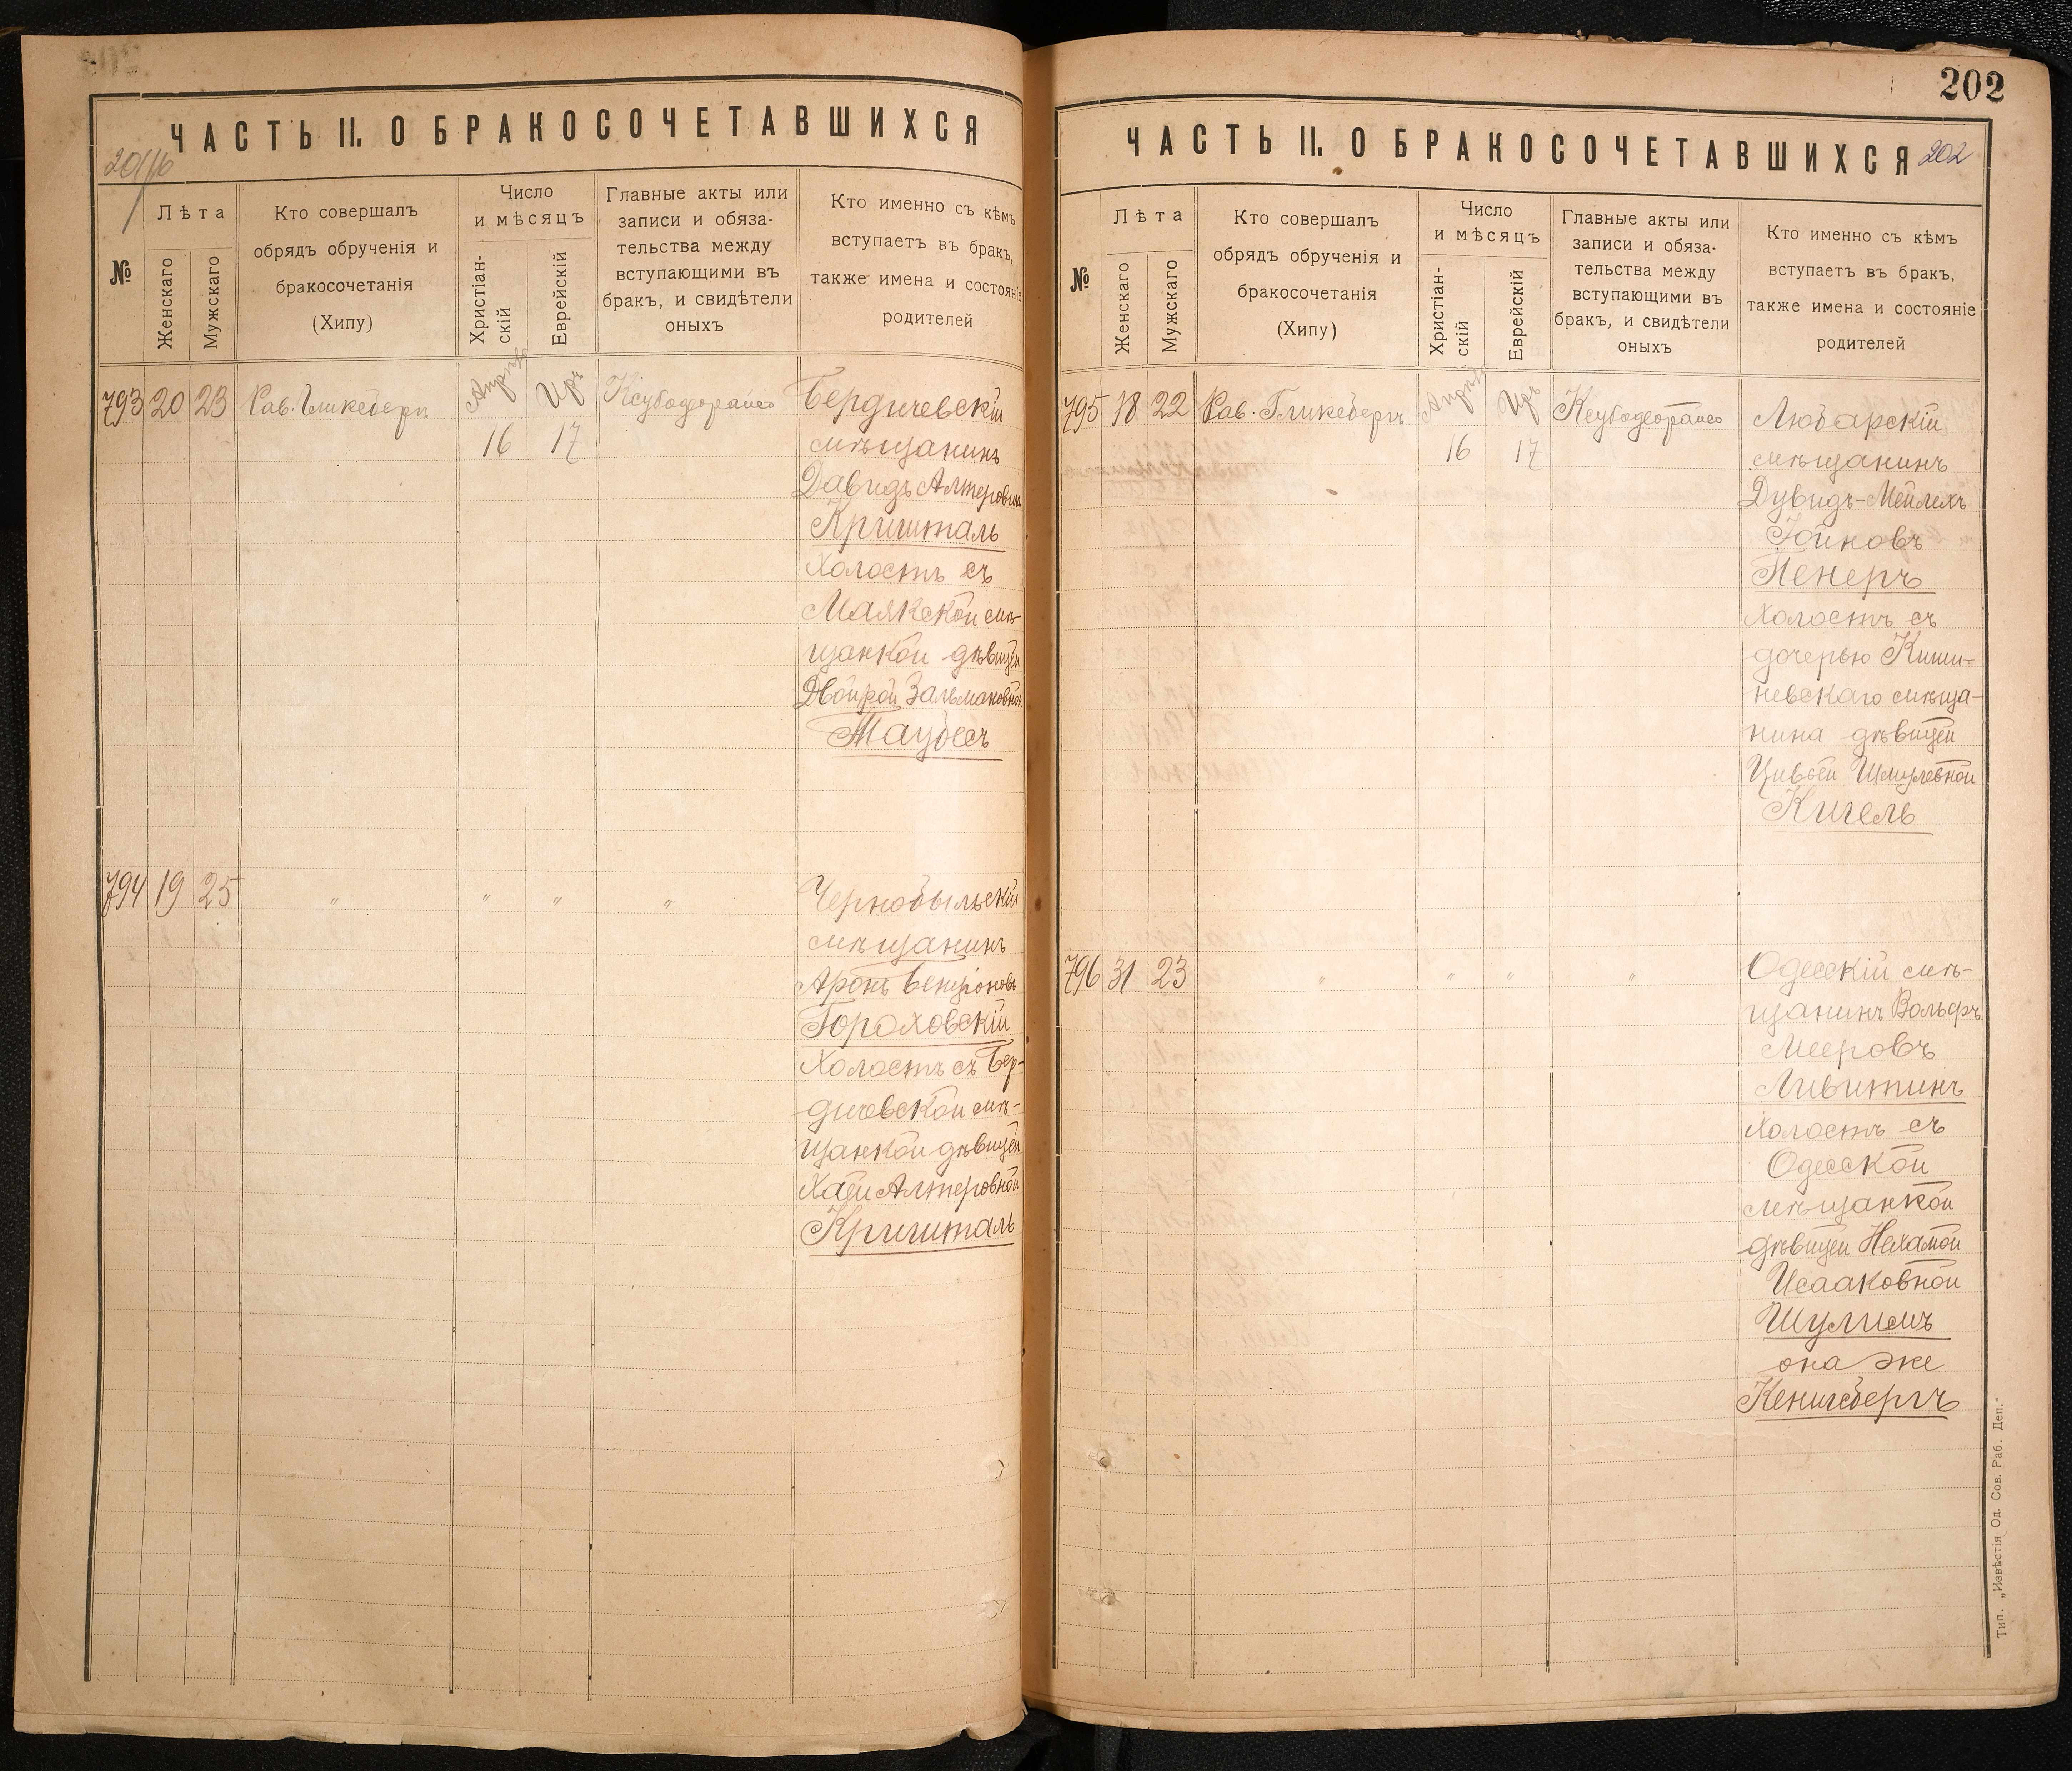 ЧАСТЬ II. О БРАКОСОЧЕТАВШИХСЯ
№
Лѣта
Женскаго
Мужскаго
Кто совершалъ
обрядъ обрученія и
бракосочетанія
(Хипу)
Число
и мѣсяцъ
Христіан-
скій
Еврейскій
Главные акты или
записи и обяза-
тельства между
вступающими въ
бракъ, и свидѣтели
оныхъ
Кто именно съ кѣмъ
вступаетъ въ бракъ,
также имена и состояніе
родителей
793 20 23 Рав. Гликсбергъ Апрѣль Иръ
16 17
Бердичевскій
мѣщанинъ
Давидъ Алтеровичъ
Кришталь
холостъ съ
Маякской мѣ-
щанкой дѣвицей
Двойрой Зальмановной
Таубесъ
794 19 25 " " " "
Чернобыльскій
мѣщанинъ
Аронъ Бенціоновъ
Гороховскій
холостъ съ Бер-
дичевской мѣ-
щанкой дѣвицей
Хаей Алтеровной
Кришталь
202
ЧАСТЬ II. О БРАКОСОЧЕТАВШИХСЯ 202
№
Лѣта
Женскаго
Мужскаго
Кто совершалъ
обрядъ обрученія и
бракосочетанія
(Хипу)
Число
и мѣсяцъ
Христіан-
скій
Еврейскій
Главные акты или
записи и обяза-
тельства между
вступающими въ
бракъ, и свидѣтели
оныхъ
Кто именно съ кѣмъ
вступаетъ въ бракъ,
также имена и состояніе
родителей
795 18 22 Рав. Гликсбергъ Апрѣль Иръ
16 17
Любарскій
мѣщанинъ
Дувидъ-Мейлехъ
Гойновъ
Пенеръ
холостъ съ
дочерью Киши-
невскаго мѣща-
нина дѣвицей
Цивьей Шмулевной
Кигель
796 31 23 " " " "
Одесскій мѣ-
щанинъ Вольфъ
Мееровъ
Ливитинъ
холостъ съ
Одесской
мѣщанкой
дѣвицей Нехамой
Исааковной
Шулимъ
она же
Кенигсбергъ
Тип. „Извѣстія Од. Сов. Раб. Деп."